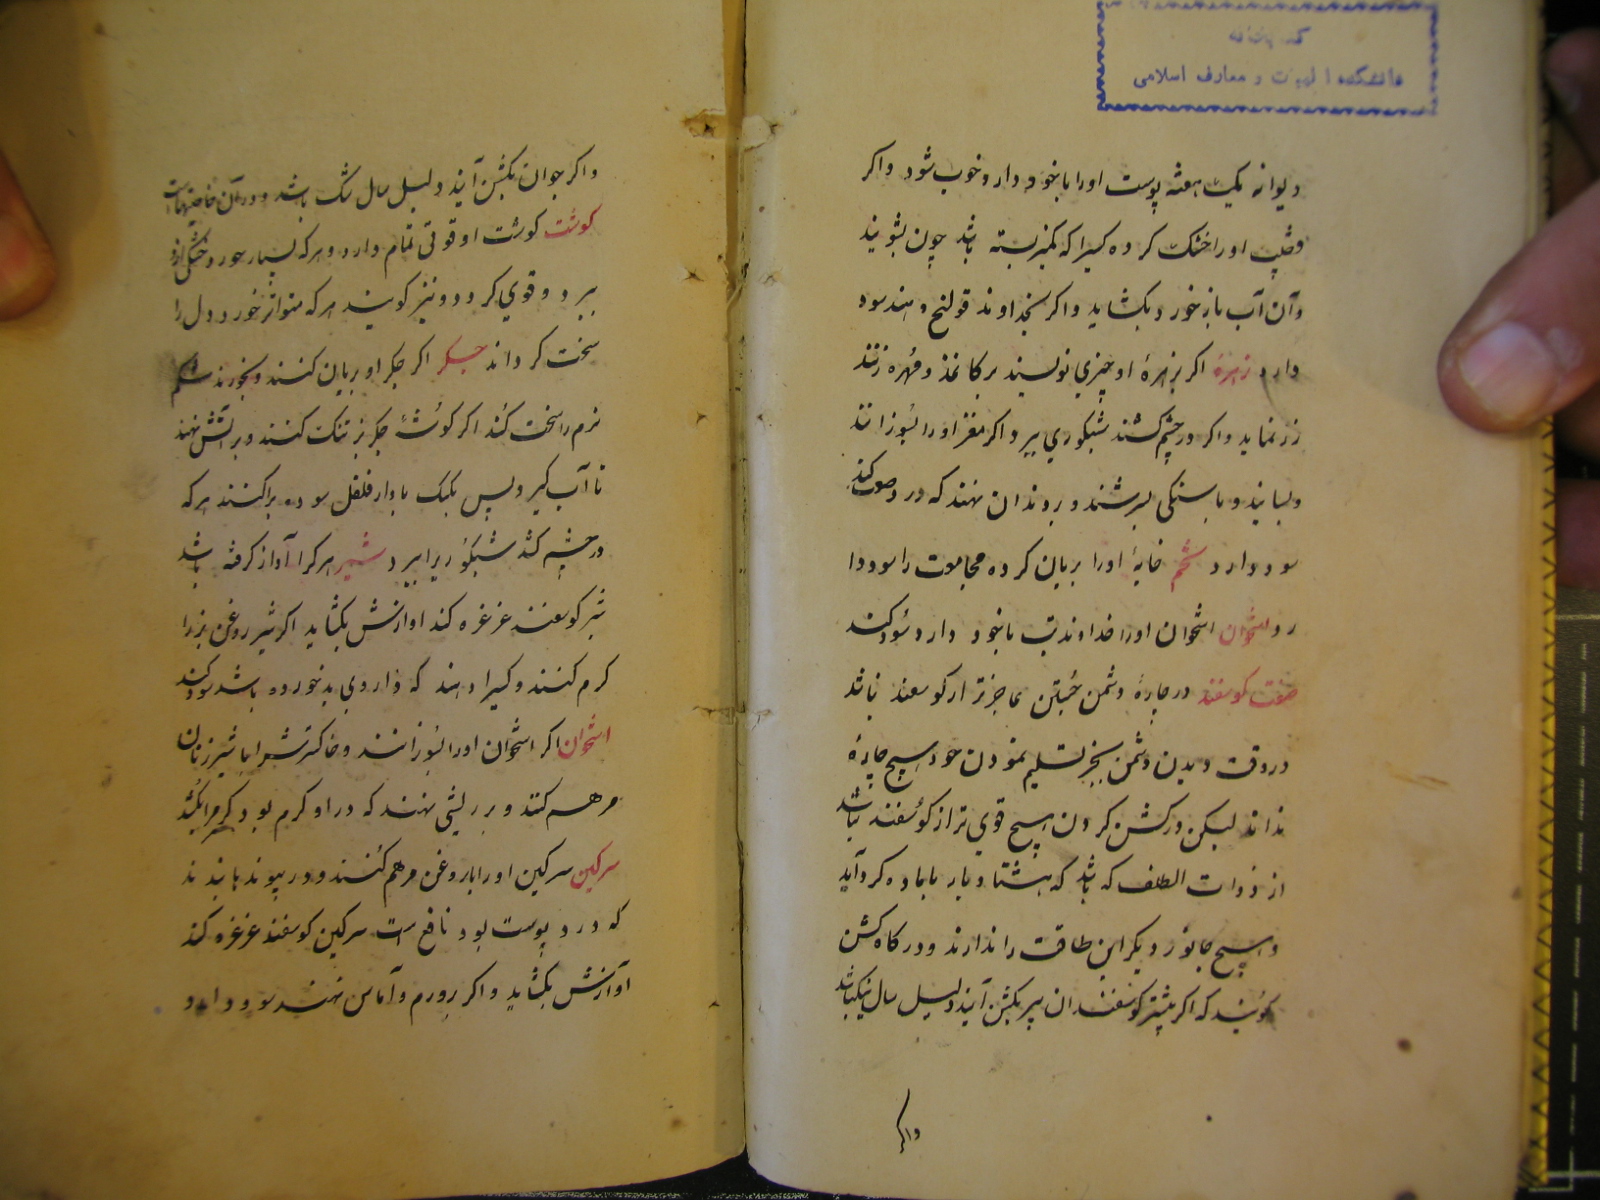 کتابخانه
دانشکده الهیات و معارف اسلامی
دیوانه یک هفته پوست اورا باخود دارد خوب شود واکر
اورا خشک کرده کسیرا که کمیز بسته باشد چون بشویند
وآن آب باز خورد بکشاید واکر بخداوند قولنج دهند سود
دارد زهره اکر بزهرهٔ او چیزی نویسند بر کاغذ ومهره زنند
زر نماید واکر در چشم کشند شبکوری ببرد اکر مغز اورا بسوزانند
وبسایند و با بسرشند و بر دندان نهند که درد کند
سود دارد خایهٔ اورا بریان کرده مجامعت را سود دا
رد استخوان استخوان اورا خداوند تب باخود دارد سود کند
صفت کوسفند در چارهٔ دشمن جستن عاجزتر از کوسفند نباشد
در وقت دیدن دشمن بجز تسلیم نمودن خود هیچ چارهٔ
نداند لیکن در کشن کردن هیچ قوی تر از کوسفند نباشد
از ذوات الظلف که باشد که هشتاد بار با ماده کرد آید
وهیچ جانور دیکر این طاقت را ندارند ودر کاه کشن
کویند که اکر بیشتر کوسفندان پیر بکشن آیند دلیل سال نیک باشد
واکر
واکر جوان بکشن آیند دلیل سال تنک باشد ودر آن خاصیتهاست
کوشت کوشت او قوتی تمام دارد وهرکه بسیار خورد خشکی ازو
ببرد وقوی کرد ونیز کویند هرکه متواتر خورد دل را
سخت کرداند جکر اکر جکر او بریان کنند وبخورند شکم
نرم را سخت کند اکر کوشهٔ جکر بز تنک کنند وبر آتش نهند
تا آب کیرد پس یک بادار فلفل سوده براکنند هرکه
در چشم کشد شبکوریرا ببرد شیر هرکرا آواز کرفته باشد
شیر کوسفند غرغره کند اوازش بکشاید اکر شیر روغن بز را
کرم کنند وکسیرا دهند که داروی بد خورده باشد سود کند
استخوان اکر استخوان اورا بسوزانند وخاکسترش را با شیر زنان
مرهم کنند و بر ریشی نهند که در او کرم بود کرم را بکشد
سرکین سرکین اورا با روغن مرهم کنند ودر پیوندها بندند
که درد پوست بود نافع است سرکین کوسفند غرغره کند
آوازش بکشاید واکر بر ورم وآماس نهند سود دارد